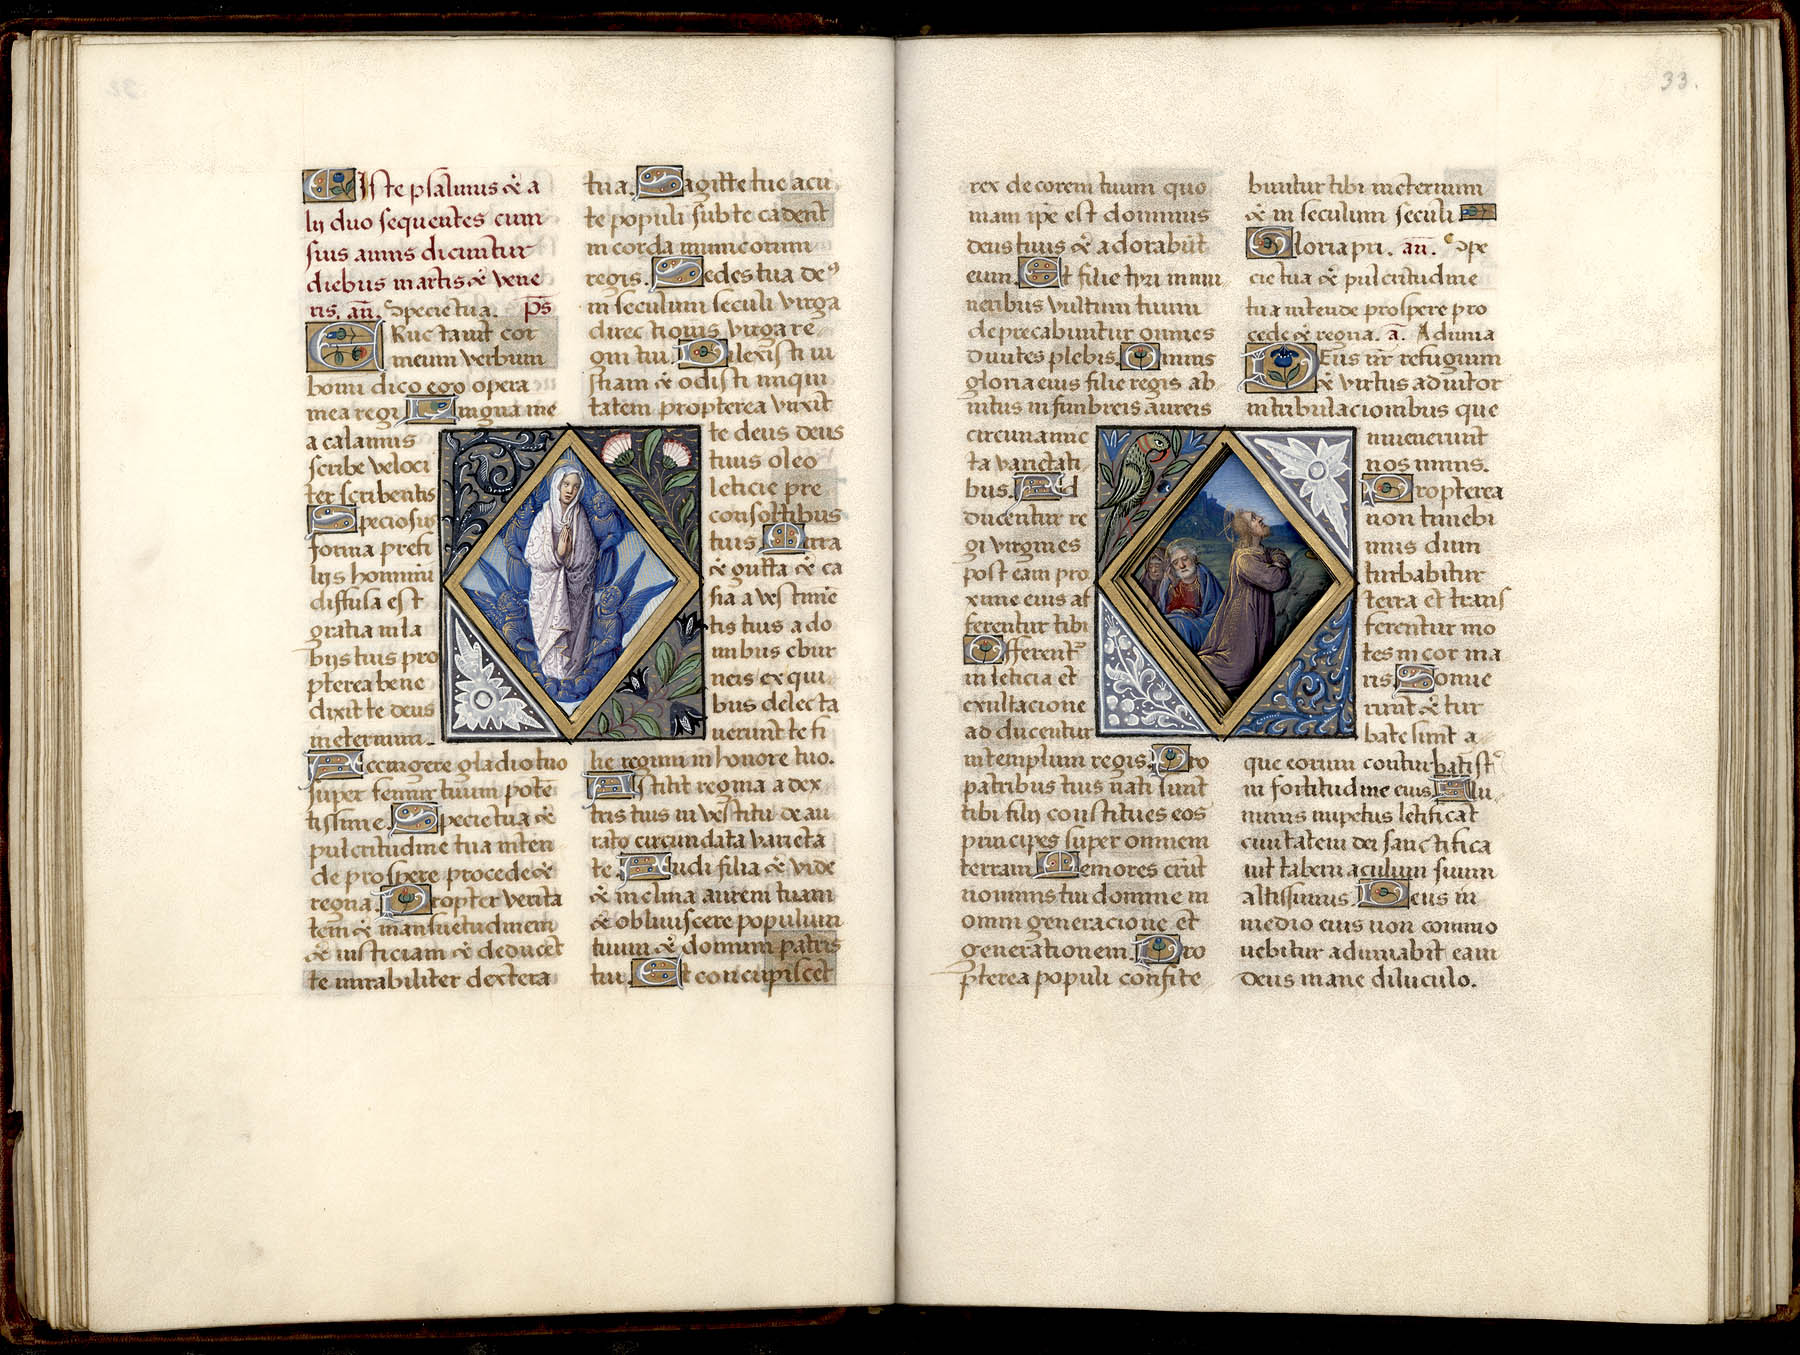 Iste psalmus & a
lij duo sequentes cum
suis annis dicuntur
diebus martis & vene
ris. an̄. Specie tua. p̄s
Eructavit cor
meum verbum
bonū dico ego opera
mea regi Lingua me
a calamus
scribe veloci
ter scribentis
Speciosus
forma prefi
lijs hominū
diffusa est
gratia in la
bijs tuis pro
pterea bene
dixit te deus
in eternum.
Accingere gladio tuo
super femur tuum potē
tissime. Specie tua &
pulcritudine tua inten
de prospere procede &
regna. Propter verita
tem & mansuetudinem
& iusticiam & deducet
te mirabiliter dextera
tua. Sagitte tue acu
te populi sub te cadent
in corda inimicorum
regis. Sedes tua de⁹
in seculum seculi virga
directionis virga re
gni tui. Dilexisti iu
sticiam & odisti iniqui
tatem propterea vnxit
te deus deus
tuus oleo
leticie pre
consortibus
tuis. Mirra
& gutta & ca
sia a vestimē
tis tuis a do
mibus ebur
neis ex qui
bus delecta
uerunt te fi
lie regum in honore tuo.
Astitit regina a dex
tris tuis in vestitu de au
rato circundata varieta
te. Audi filia & vide
& inclina aurem tuam
& obliuiscere populum
tuum & domum patris
tui. Et concupiscet
33.
rex decorem tuum quo
niam ipē est dominus
deus tuus & adorabūt
eum. Et filie tyri in mu
neribus vultum tuum
deprecabuntur omnes
diuites plebis. Omnis
gloria eius filie regis ab
intus in fimbreis aureis
circunamic
ta varietati
bus. Ad
ducentur re
gi virgines
post eam pro
xime eius af
ferentur tibi
Afferent᷑
in leticia et
exultacione
ad ducentur
in templum regis. Pro
patribus tuis nati sunt
tibi filij constitues eos
principes super omnem
terram Memores erūt
nominis tui domine in
omni generacione et
generationem. Pro
pterea populi confite
buntur tibi in eternum
& in seculum seculi
Gloria pri. an̄. Spe
cie tua & pulcritudine
tua intende prospere pro
cede & regna. a. Adiuua
Deus nr̄ refugium
& virtus adiutor
in tribulacionibus que
inuenerunt
nos nimis.
Propterea
non timebi
mus dum
turbabitur
terra et trans
ferentur mo
tes in cor ma
ris. Sonue
runt & tur
bate sunt a
que eorum conturbati st̄
in fortitudine eius. Flu
minis impetus letificat
ciuitatem dei sanctifica
uit tabernaculum suum
altissimus. Deus in
medio eius non commo
uebitur adiuuabit eam
deus mane diluculo.